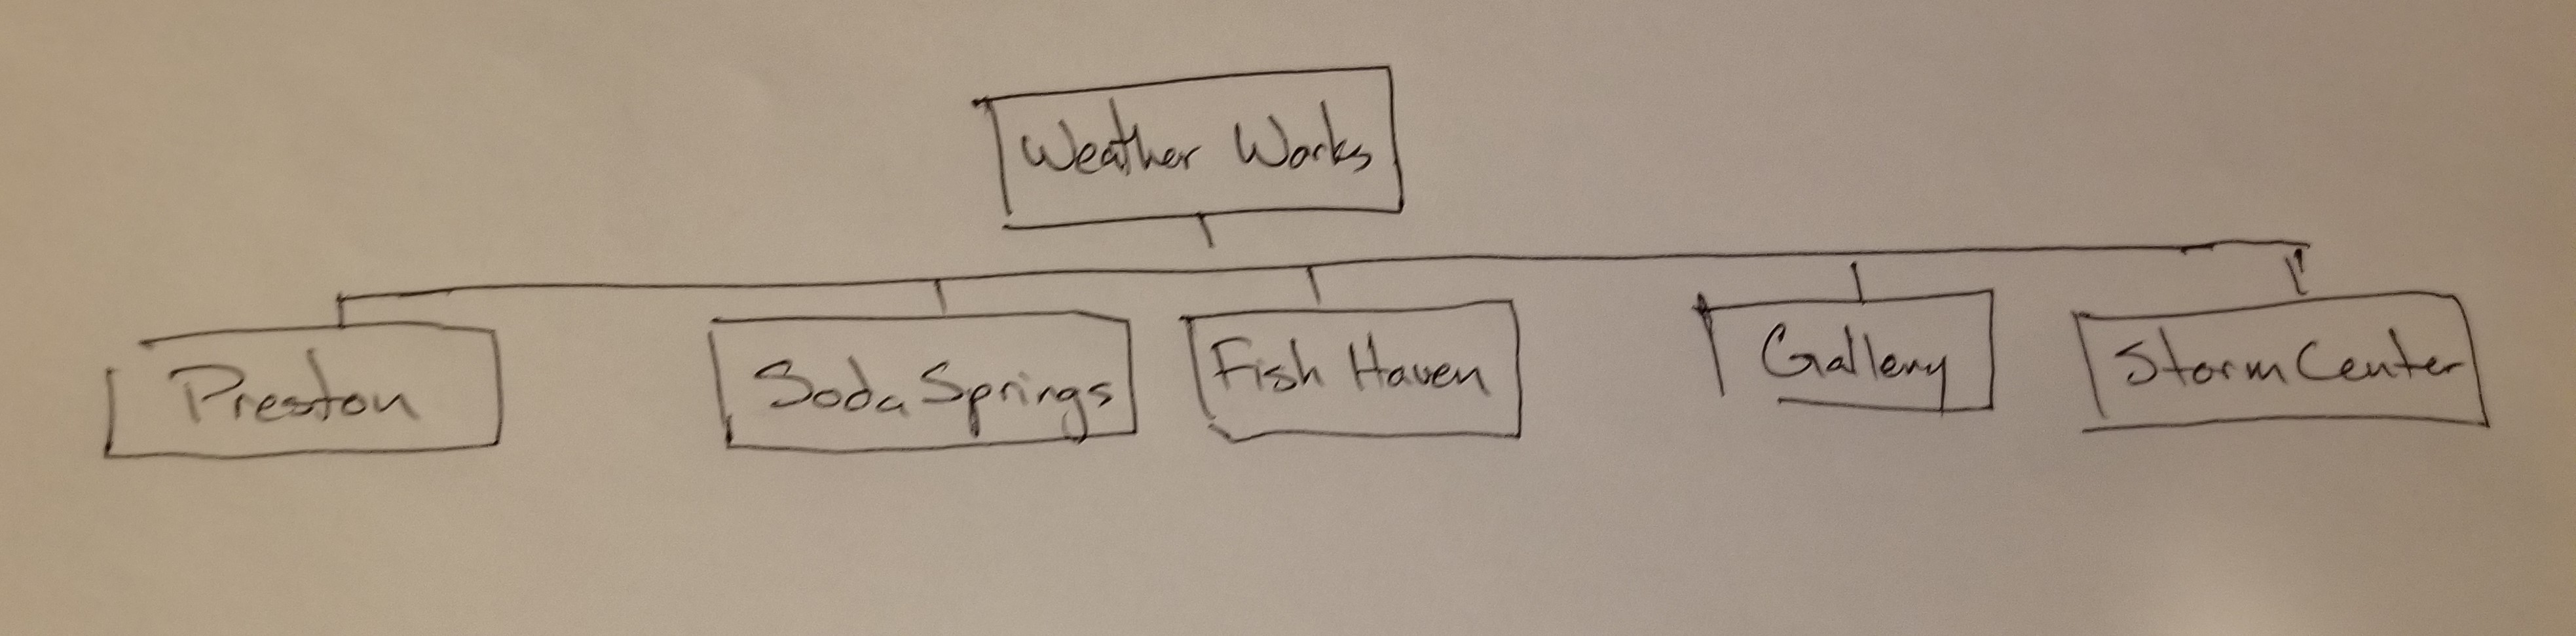 Weather Works
Preston
Soda Springs
Fish Haven
Gallery
Storm Center